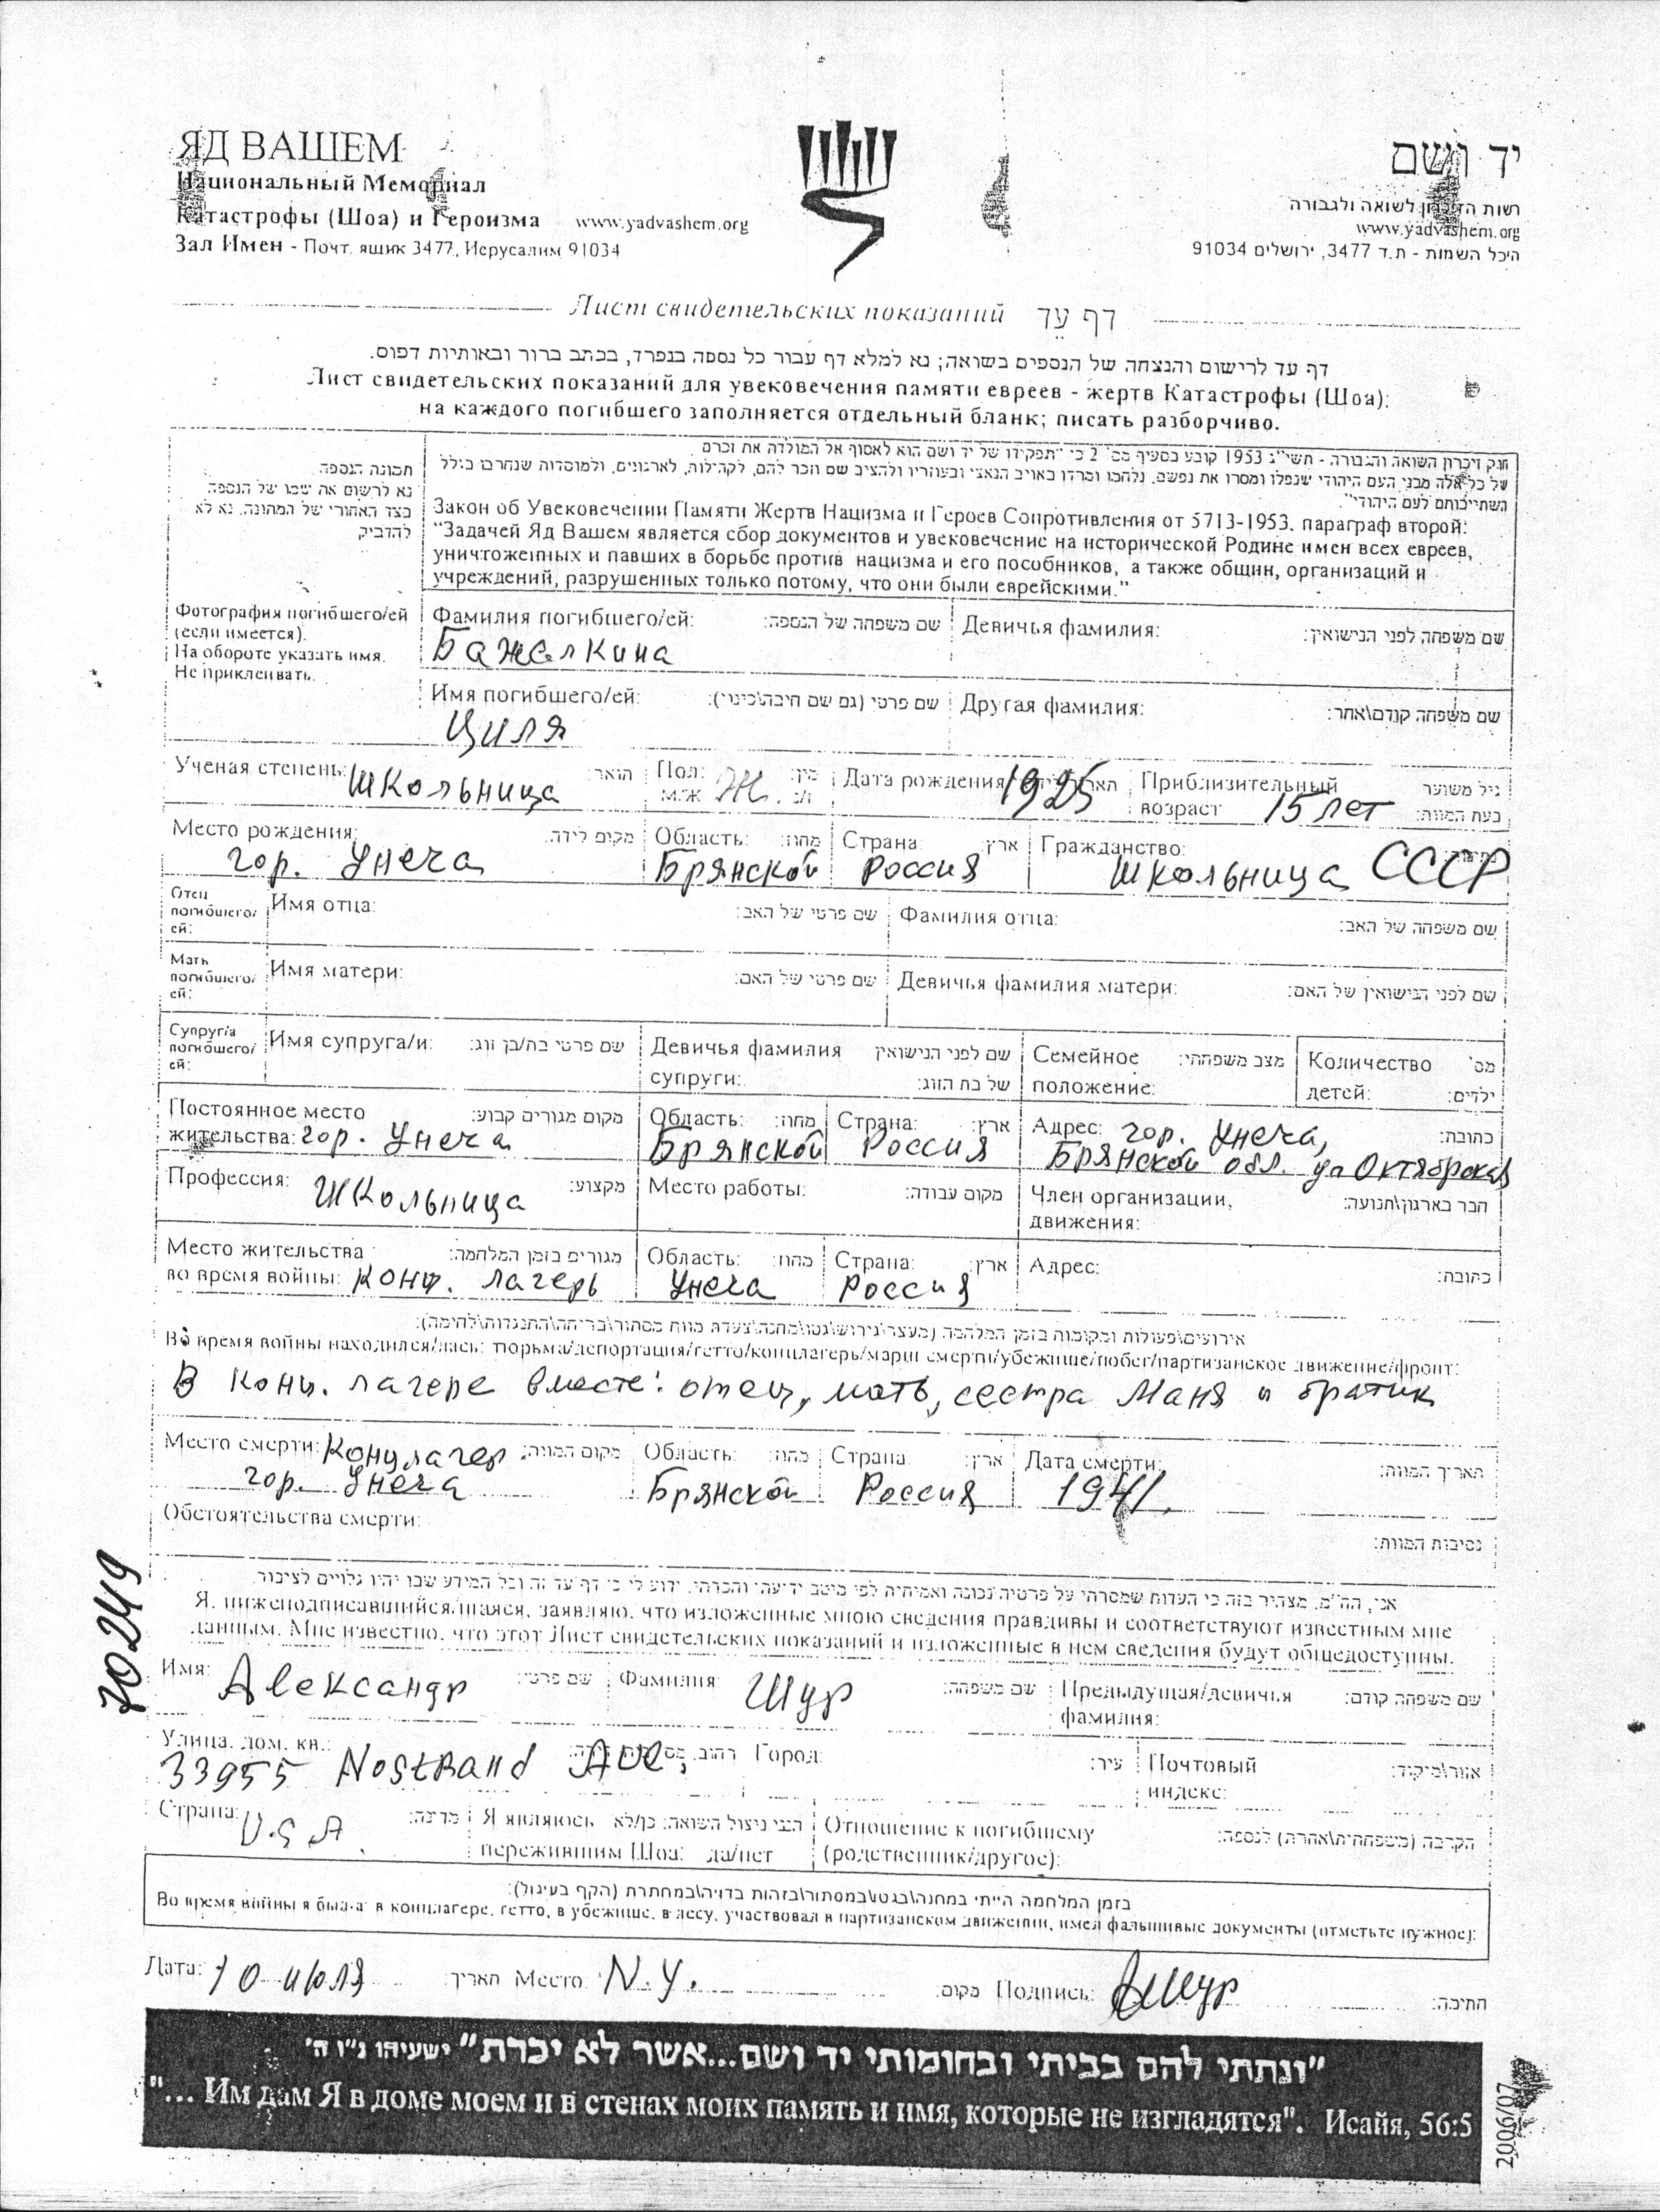 ЯД ВАШЕМ
Национальный Мемориал
Катастрофы (Шоа) и Героизма www.yadvashem.org
Зал Имен - Почт. ящик 3477, Иерусалим 91034
יד ושם
רשות הזיכרון לשואה ולגבורה
www.yadvashem.org
היכל השמות - ת.ד 3477, ירושלים 91034
Лист свидетельских показаний דף עד
דף עד לרישום והנצחה של הנספים בשואה; נא למלא דף עבור כל נספה בנפרד, בכתב ברור ובאותיות דפוס.
Лист свидетельских показаний для увековечения памяти евреев - жертв Катастрофы (Шоа);
на каждого погибшего заполняется отдельный бланк; писать разборчиво.
תמונת הנספה
נא לרשום את שמו של הנספה
בצד האחורי של התמונה. נא לא
להדביק
חוק זיכרון השואה והגבורה - תשי"ג 1953 קובע בסעיף מס' 2 כי "תפקידו של יד ושם הוא לאסוף אל המולדת את זכרם
של כל אלה מבני העם היהודי שנפלו ומסרו את נפשם, נלחמו ומרדו באויב הנאצי ובעוזריו ולהציב שם וזכר להם, לקהילות, לארגונים, ולמוסדות שנחרבו בגלל
השתייכותם לעם היהודי".
Закон об Увековечении Памяти Жертв Нацизма и Героев Сопротивления от 5713-1953, параграф второй:
"Задачей Яд Вашем является сбор документов и увековечение на исторической Родине имен всех евреев,
уничтоженных и павших в борьбе против нацизма и его пособников, а также общин, организаций и
учреждений, разрушенных только потому, что они были еврейскими."
Фотография погибшего/ей
(если имеется).
На обороте указать имя.
Не приклеивать.
Фамилия погибшего/ей: שם משפחה של הנספה: Девичья фамилия: שם משפחה לפני הנישואין:
Бажалкина
Имя погибшего/ей: שם פרטי (גם שם חיבה/כינוי): Другая фамилия: שם משפחה קודם/אחר:
Циля
Ученая степень: школьница תואר: Пол: М/Ж Ж. מין: ז/נ Дата рождения 1925 Приблизительный возраст 15 лет גיל משוער בעת המוות:
Место рождения: מקום לידה: Область: מחוז: Страна: ארץ: Гражданство:
гор. Унеча Брянской Россия школьница СССР
Отец погибшего/ей: Имя отца: שם פרטי של האב: Фамилия отца: שם משפחה של האב:
Мать погибшего/ей: Имя матери: שם פרטי של האם: Девичья фамилия матери: שם לפני הנישואין של האם:
Супруг/а погибшего/ей: Имя супруга/и: שם פרטי בת/בן זוג: Девичья фамилия супруги: שם לפני הנישואין של בת הזוג: Семейное положение: מצב משפחתי: Количество детей: מס' ילדים:
Постоянное место מקום מגורים קבוע: Область: מחוז: Страна: ארץ: Адрес: гор. Унеча, כתובת:
жительства: гор. Унеча Брянской Россия Брянской обл. ул Октябрская
Профессия: Школьница מקצוע: Место работы: מקום עבודה: Член организации, движения: חבר בארגון/תנועה:
Место жительства מגורים בזמן המלחמה: Область: מחוז: Страна: ארץ: Адрес: כתובת:
во время войны: конц. лагерь Унеча Россия
אירועים/פעולות ומקומות בזמן המלחמה (מעצר/גירוש/גטו/מחנה/צעדת מוות/מסתור/בריחה/התנגדות/לחימה):
Во время войны находился/лась: тюрьма/депортация/гетто/концлагерь/марш смерти/убежище/побег/партизанское движение/фронт:
В конц. лагере вместе: отец, мать, сестра Маня и братик
Место смерти: Концлагер מקום המוות: Область: מחוז: Страна: ארץ: Дата смерти: תאריך המוות:
гор. Унеча Брянской Россия 1941.
Обстоятельства смерти: נסיבות המוות:
אני, הח"מ, מצהיר בזה כי העדות שמסרתי על פרטיה נכונה ואמיתית לפי מיטב ידיעתי והכרתי. ידוע לי כי דף עד זה וכל המידע שבו יהיו גלויים לציבור.
Я, нижеподписавшийся/шаяся, заявляю, что изложенные мною сведения правдивы и соответствуют известным мне
данным. Мне известно, что этот Лист свидетельских показаний и изложенные в нем сведения будут общедоступны.
70249
Имя: Александр שם פרטי: Фамилия: Шур שם משפחה: Предыдущая/девичья фамилия: שם משפחה קודם:
Улица, дом, кв.: Город: עיר: Почтовый индекс: אזור/מיקוד:
33955 Nostrand Ave,
Страна: U.S.A. מדינה: Я являюсь пережившим Шоа: да/нет הנני ניצול השואה: כן/לא Отношение к погибшему (родственник/другое): הקרבה (משפחתית/אחרת) לנספה:
בזמן המלחמה הייתי במחנה/בגטו/במסתור/בזהות בדויה/במחתרת (הקף בעיגול):
Во время войны я был/а: в концлагере, гетто, в убежище, в лесу, участвовал в партизанском движении, имел фальшивые документы (отметьте нужное):
Дата: 10 июля תאריך Место: N.Y. מקום: Подпись: АШур חתימה:
"ונתתי להם בביתי ובחומותי יד ושם...אשר לא יכרת" ישעיהו נ"ו ה'
"... Им дам Я в доме моем и в стенах моих память и имя, которые не изгладятся". Исайя, 56:5
2006/07